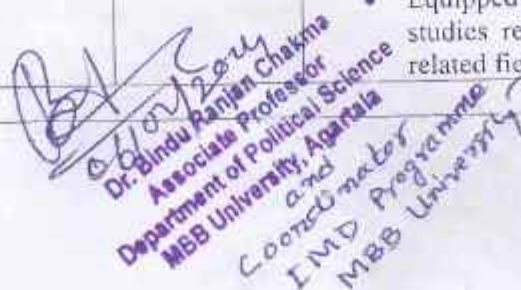 Equipped
studies re
related fie
06/04/2024
Dr. Bindu Ranjan Chakma
Associate Professor
Department of Political Science
MBB University, Agartala
and
Coordinator
IMD Programme
MBB University